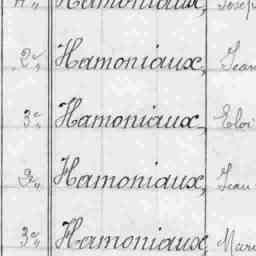 Hamoniaux, Josep
2e, Hamoniaux, Jean
3e, Hamoniaux, Eloi
3e, Hamoniaux, Jean
3e, Hamoniaux, Mari